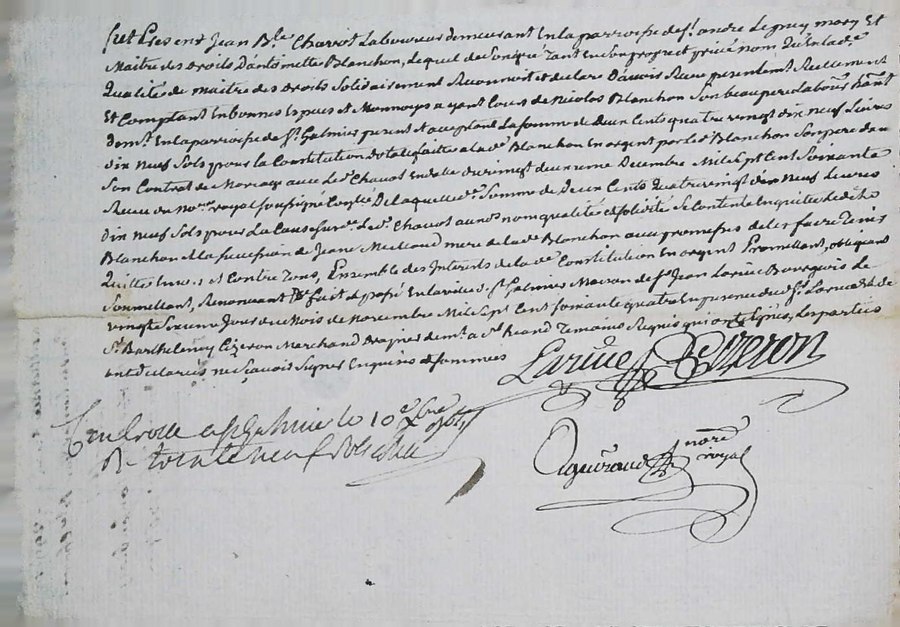 fut Present Jean B.te Chavot Laboureur demeurant En la parroisse de s.t andré Le puy mary Et
Maitre des droits D'antoinette Blanchon, Lequel de son gré Tant En son propre et privé nom Qu'En lad.e
Qualité de maitre des droits Solidairement Reconnoit et declare D'avoir Reçu presentement Reellement
Et Comptant En bonnes Espèces et Monnoye ayant Cours de Nicolas Blanchon Son beau pere Laboureur hâant
dem.t En la parroisse de S.t Galmier present et acceptant La somme de deux Cents quatre vingt dix neuf Livres
dix neuf Sols pour la Constitution dotale faitte a la d.e Blanchon En argent par led. Blanchon Son pere dans
Son Contrat de Mariage avec Le d. Chavot En datte du vingt deuxieme Decembre Mil Sept Cent Soixante
Reçu du No.re royal soussigné De laquelle d.e Somme de Deux Cents Quatre vingt dix Neuf Livres
dix Neuf Sols pour La Cause susd.e Le d. Chavot aux nom qualité et solidité Se Contente En quitte led.
Blanchon Et la succession de Jeanne Meilland mere de lad.e Blanchon avec promesses de les faire Tenir
Quittes Envers et Contre Tous, Ensemble des Interets de la d.e Constitution En argent Promettant, obligeant
Soumettant, Renonceant fait et passé En la ville de S.t Galmier Maison de S.r Jean Larüe Bourgeois Le
vingt Sixieme Jour du Mois de Novembre Mil Sept Cent soixante quatre En presence du d. S.r Larüe et de
S.r Barthelemy Cizeron Marchand dem.t a S.t Temoins Requis qui ont Signés, Les parties
ont declarées ne Sçavoir Signer Enquises et sommées
Larüe Cizeron
Controllé a S.t Galmier le 10.e Xbre 1764
R.
Aguiraud nore
royal